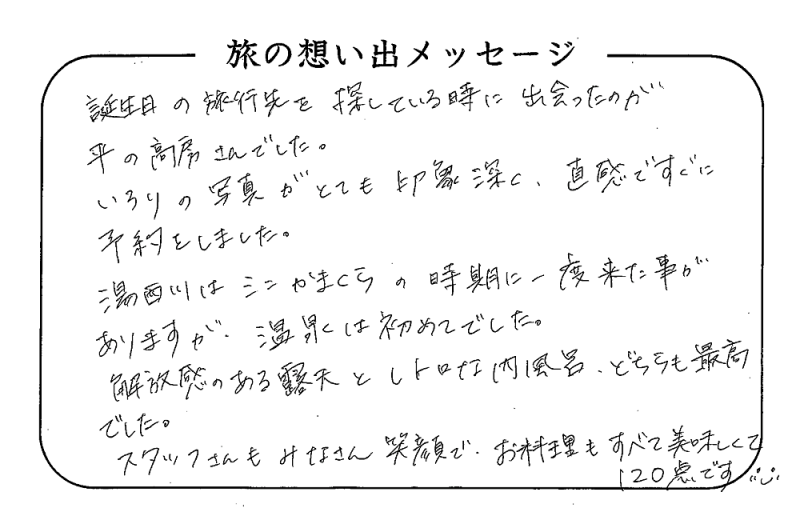 旅の想い出メッセージ
誕生日の旅行先を探している時に出会ったのが
平の高房さんでした。
いろりの写真がとても印象深く、直感ですぐに
予約をしました。
湯西川はミニかまくらの時期に一度来た事が
ありますが、温泉は初めてでした。
解放感のある露天とレトロな内風呂、どちらも最高
でした。
スタッフさんもみなさん笑顔で、お料理もすべて美味しくて
120点です